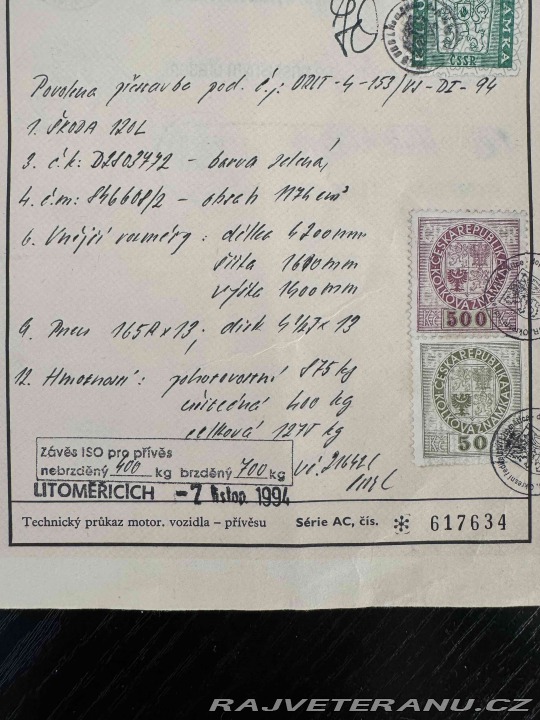 ZNÁMKA
ČSSR
Povolena přestavba pod č.j.: ORLT-4-153/VS-DI-94
1. ŠKODA 120L
3. č.k: D2803772 - barva zelená,
4. č.m: 846608/2 - obsah 1174 cm³
6. Vnější rozměry: délka 4200mm
šířka 1610mm
výška 1400mm
9. Pneu 165R x 13, disk x 13
12. Hmotnosti: pohotovostní 875 kg
užitečná 400 kg
celková 1275 kg
ČESKÁ REPUBLIKA
KOLKOVÁ ZNÁMKA
Kč 500
ČESKÁ REPUBLIKA
KOLKOVÁ ZNÁMKA
Kč 50
Závěs ISO pro přívěs
nebrzděný 400 kg brzděný 700 kg
LITOMĚŘICÍCH - 7. listop. 1994
Technický průkaz motor. vozidla – přívěsu Série AC, čís. ✻ 617634
RAJVETERANU.CZ